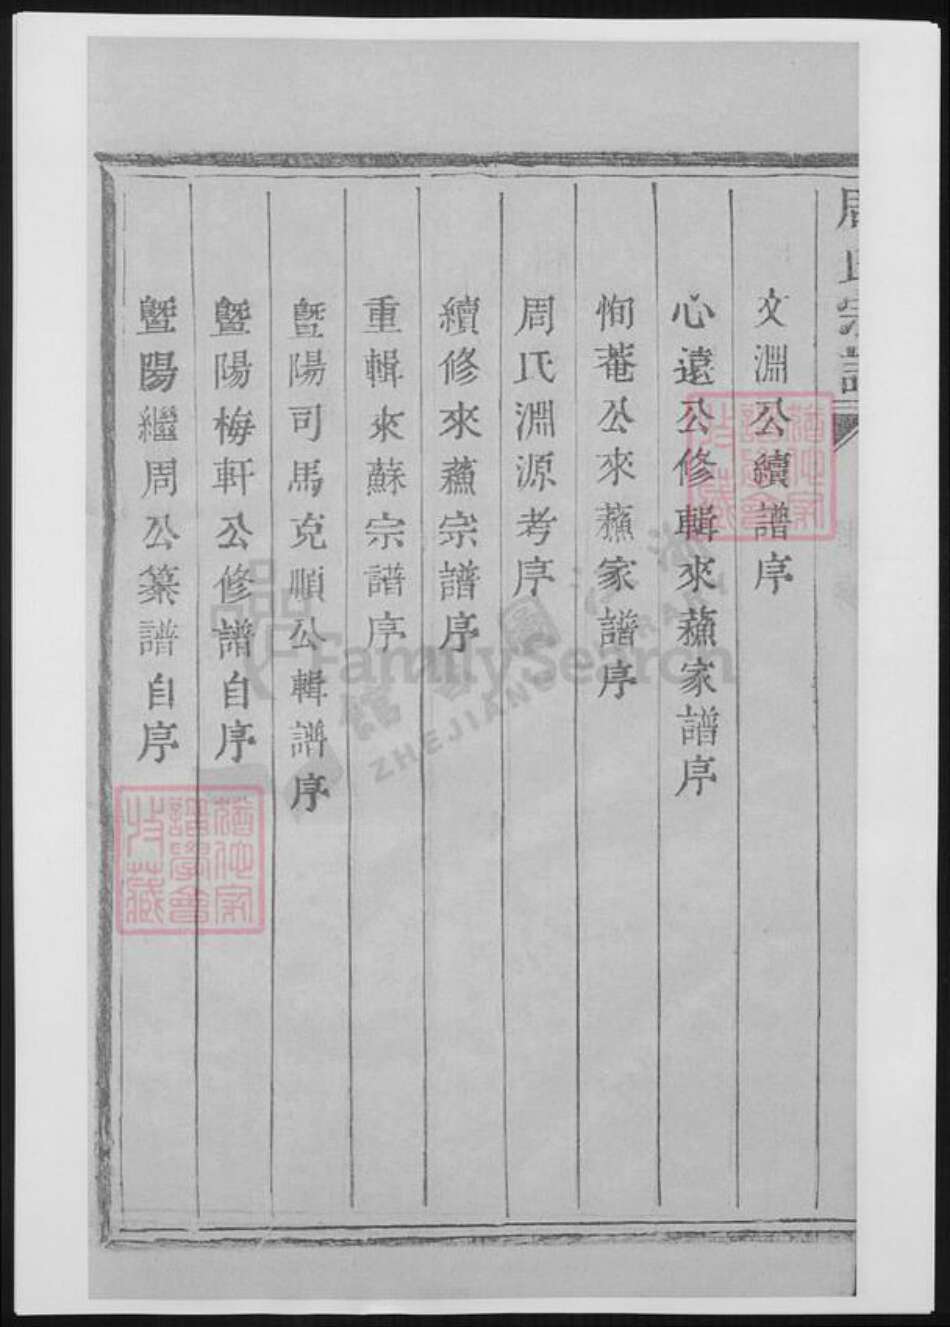 周氏宗譜
文淵公續譜序
心遠公修輯來蘓家譜序
恂菴公來蘓家譜序
周氏淵源考序
續修來蘓宗譜序
重輯來蘇宗譜序
暨陽司馬克順公輯譜序
暨陽梅軒公修譜自序
暨陽繼周公纂譜自序
FamilySearch